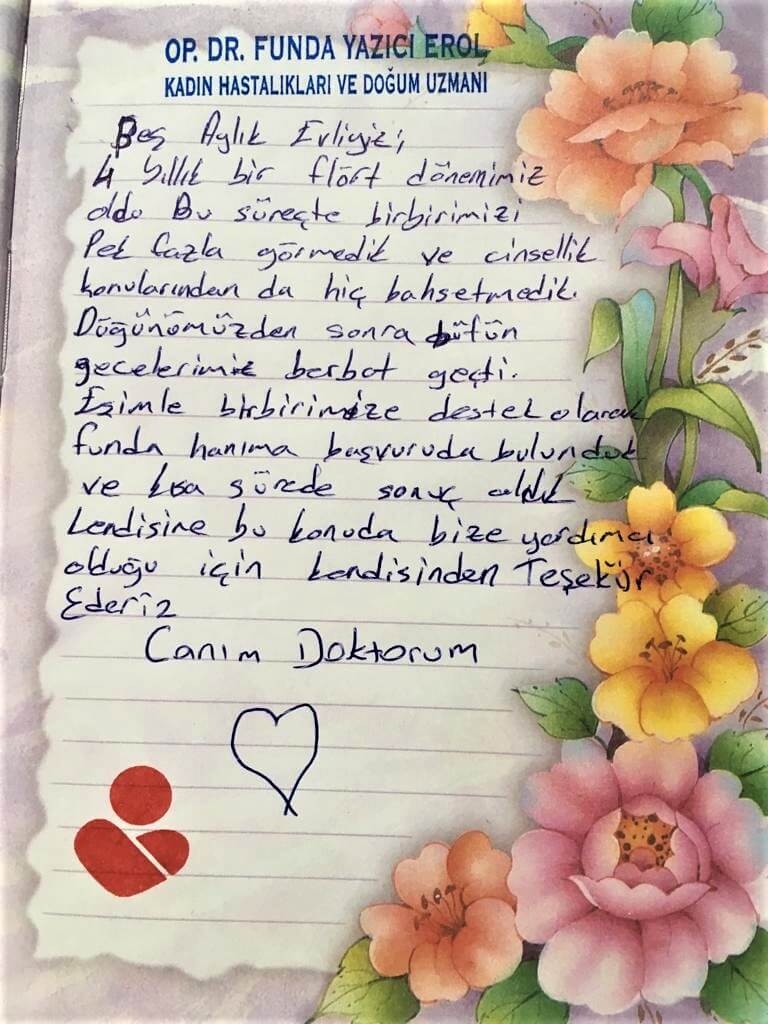 OP. DR. FUNDA YAZICI EROL
KADIN HASTALIKLARI VE DOĞUM UZMANI
Beş Aylık Evliyiz,
4 yıllık bir flört dönemimiz
oldu Bu süreçte birbirimizi
Pek fazla görmedik ve cinsellik
konularından da hiç bahsetmedik.
Düğünümüzden sonra bütün
gecelerimiz berbat geçti.
Eşimle birbirimize destek olarak
funda hanıma başvuruda bulunduk
ve kısa sürede sonuç aldık
kendisine bu konuda bize yardımcı
olduğu için kendisinden Teşekür
Ederiz
Canım Doktorum